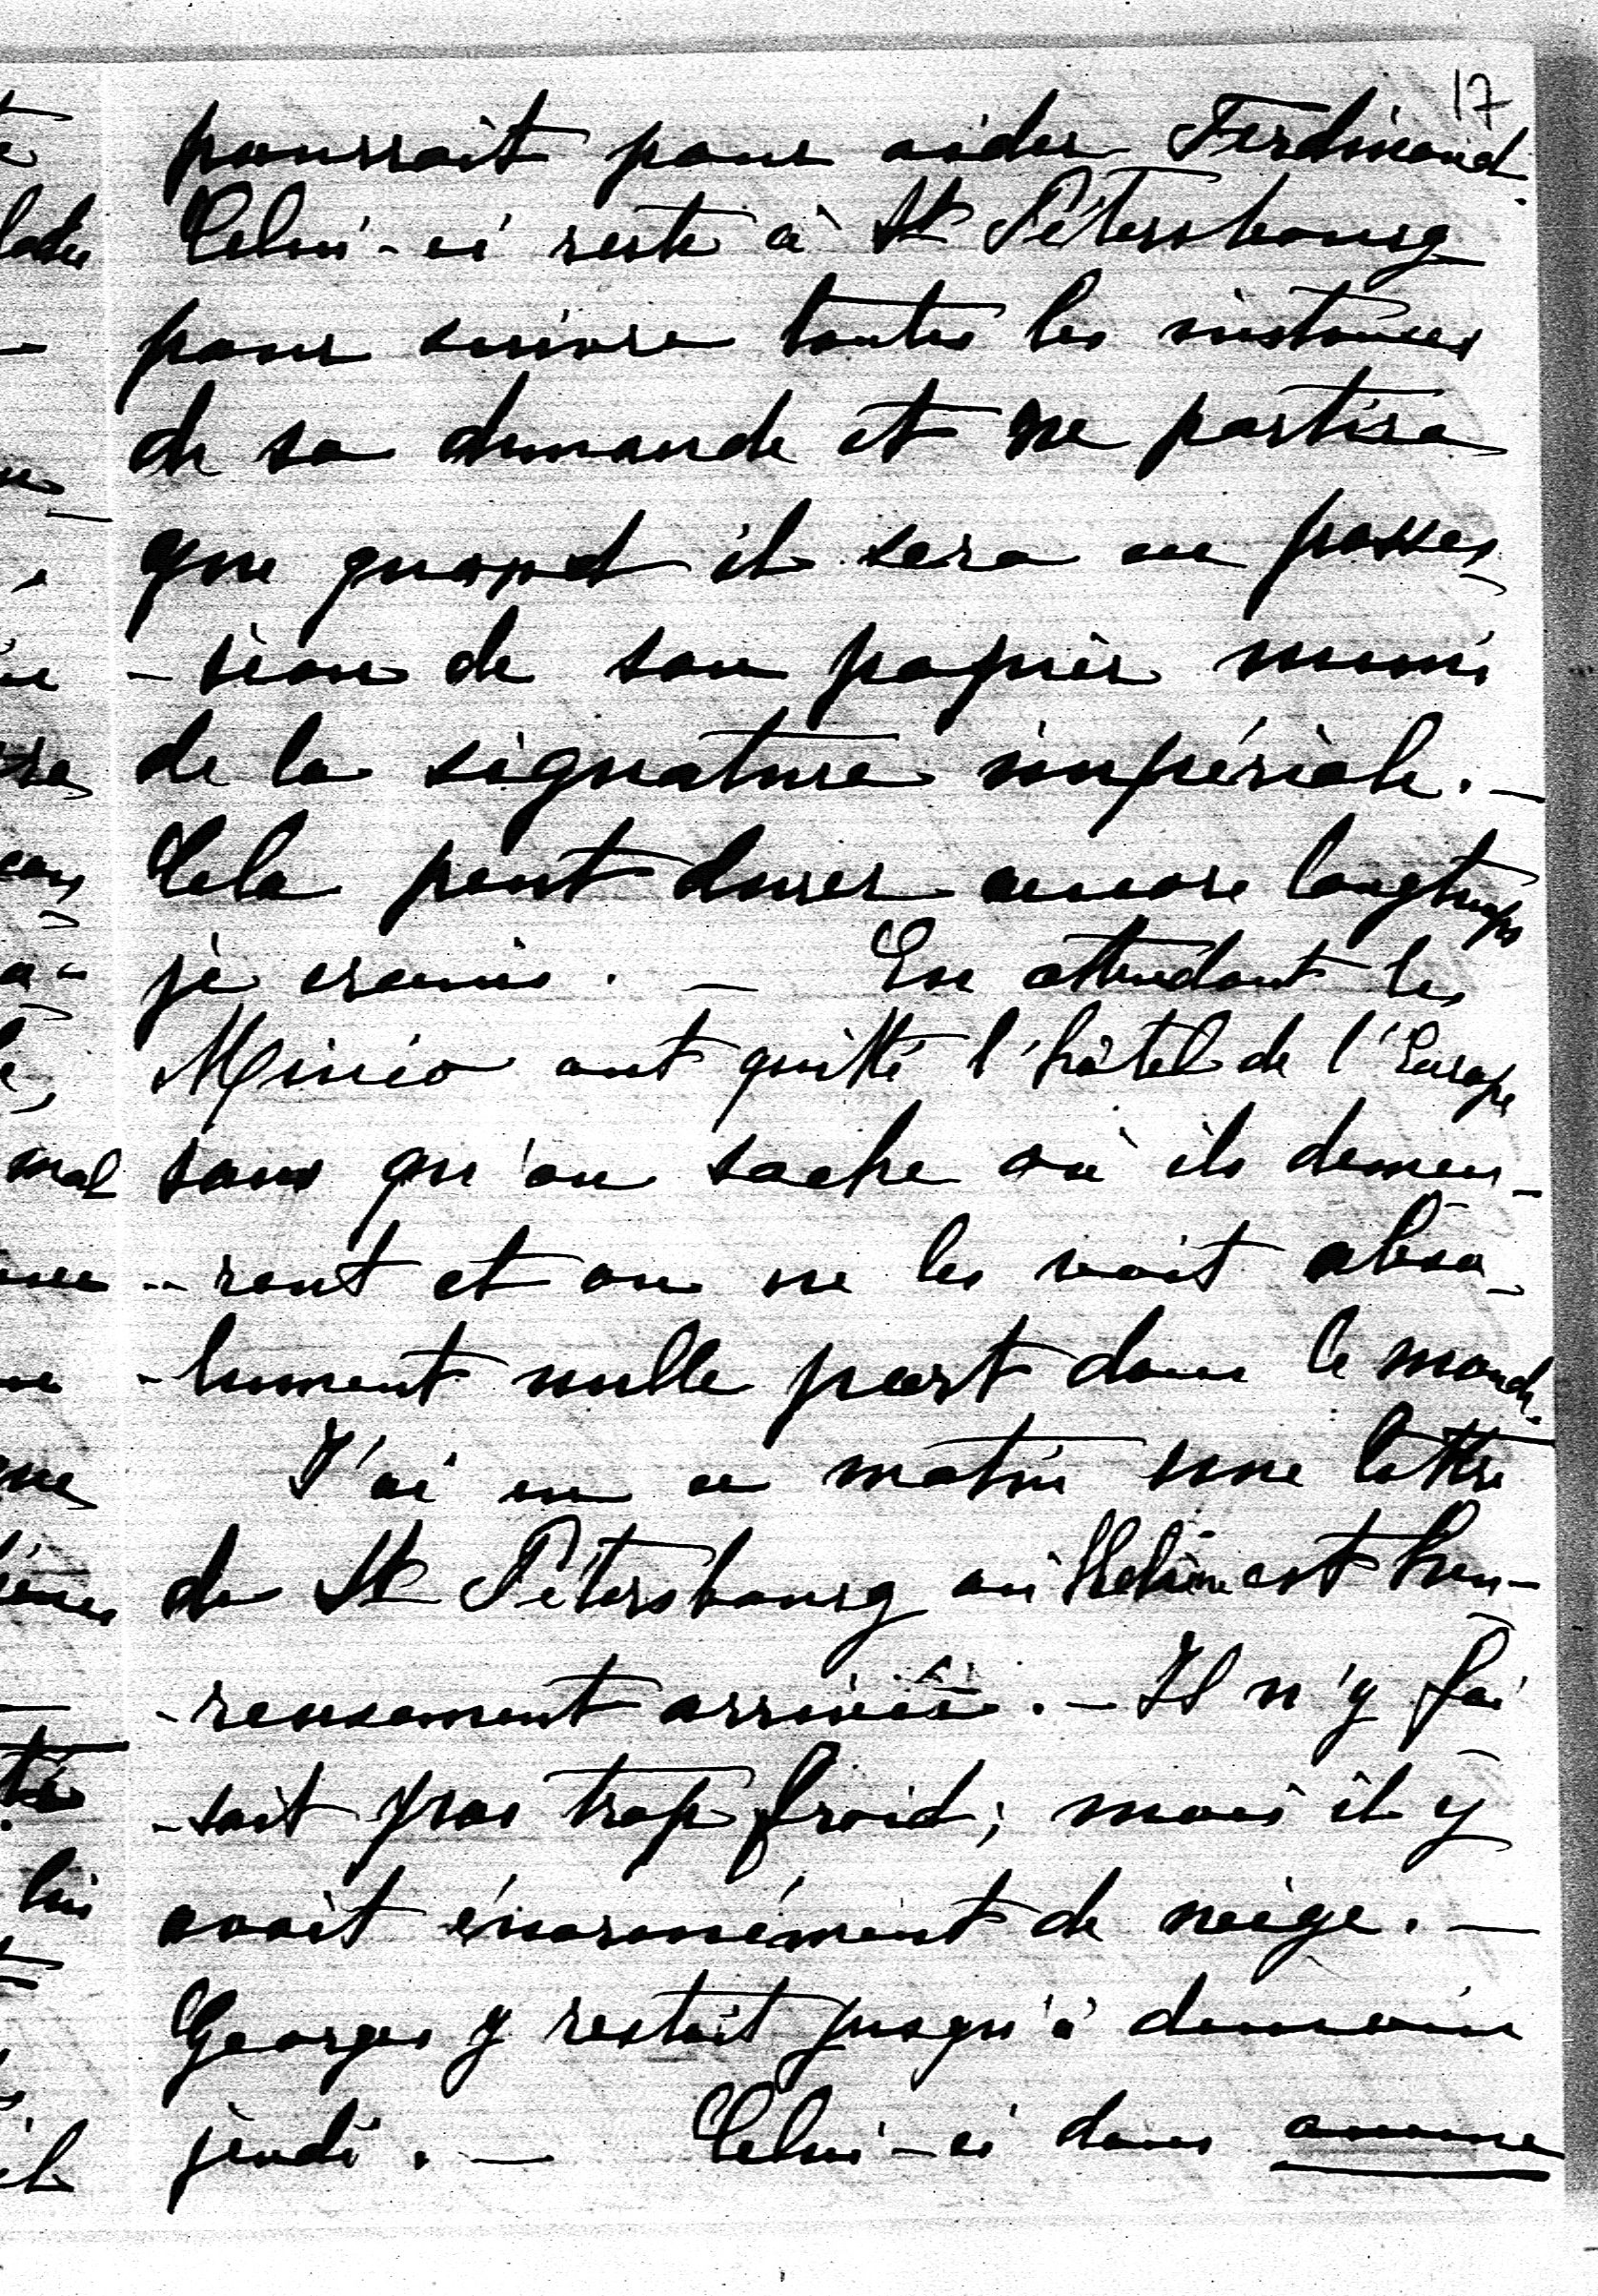 17
pourrait pour aider Ferdinand.
Celui-ci reste à St Pétersbourg
pour suivre toutes les instances
de sa demande et ne partira
que quand il sera en posses-
-sion de son papier muni
de la signature impériale. —
Cela peut durer encore longtemps
je crains. — En attendant les
Minio ont quitté l'hôtel de l'Europe
sans qu'on sache où ils demeu-
-rent et on ne les voit abso-
-lument nulle part dans le monde.
J'ai eu ce matin une lettre
de St Pétersbourg où Hélène est heu-
-reusement arrivée. — Il n'y fai
-sait pas trop froid; mais il y
avait énormément de neige. —
Georges y restait jusqu'à demain
jeudi. — Celui-ci dans aucune